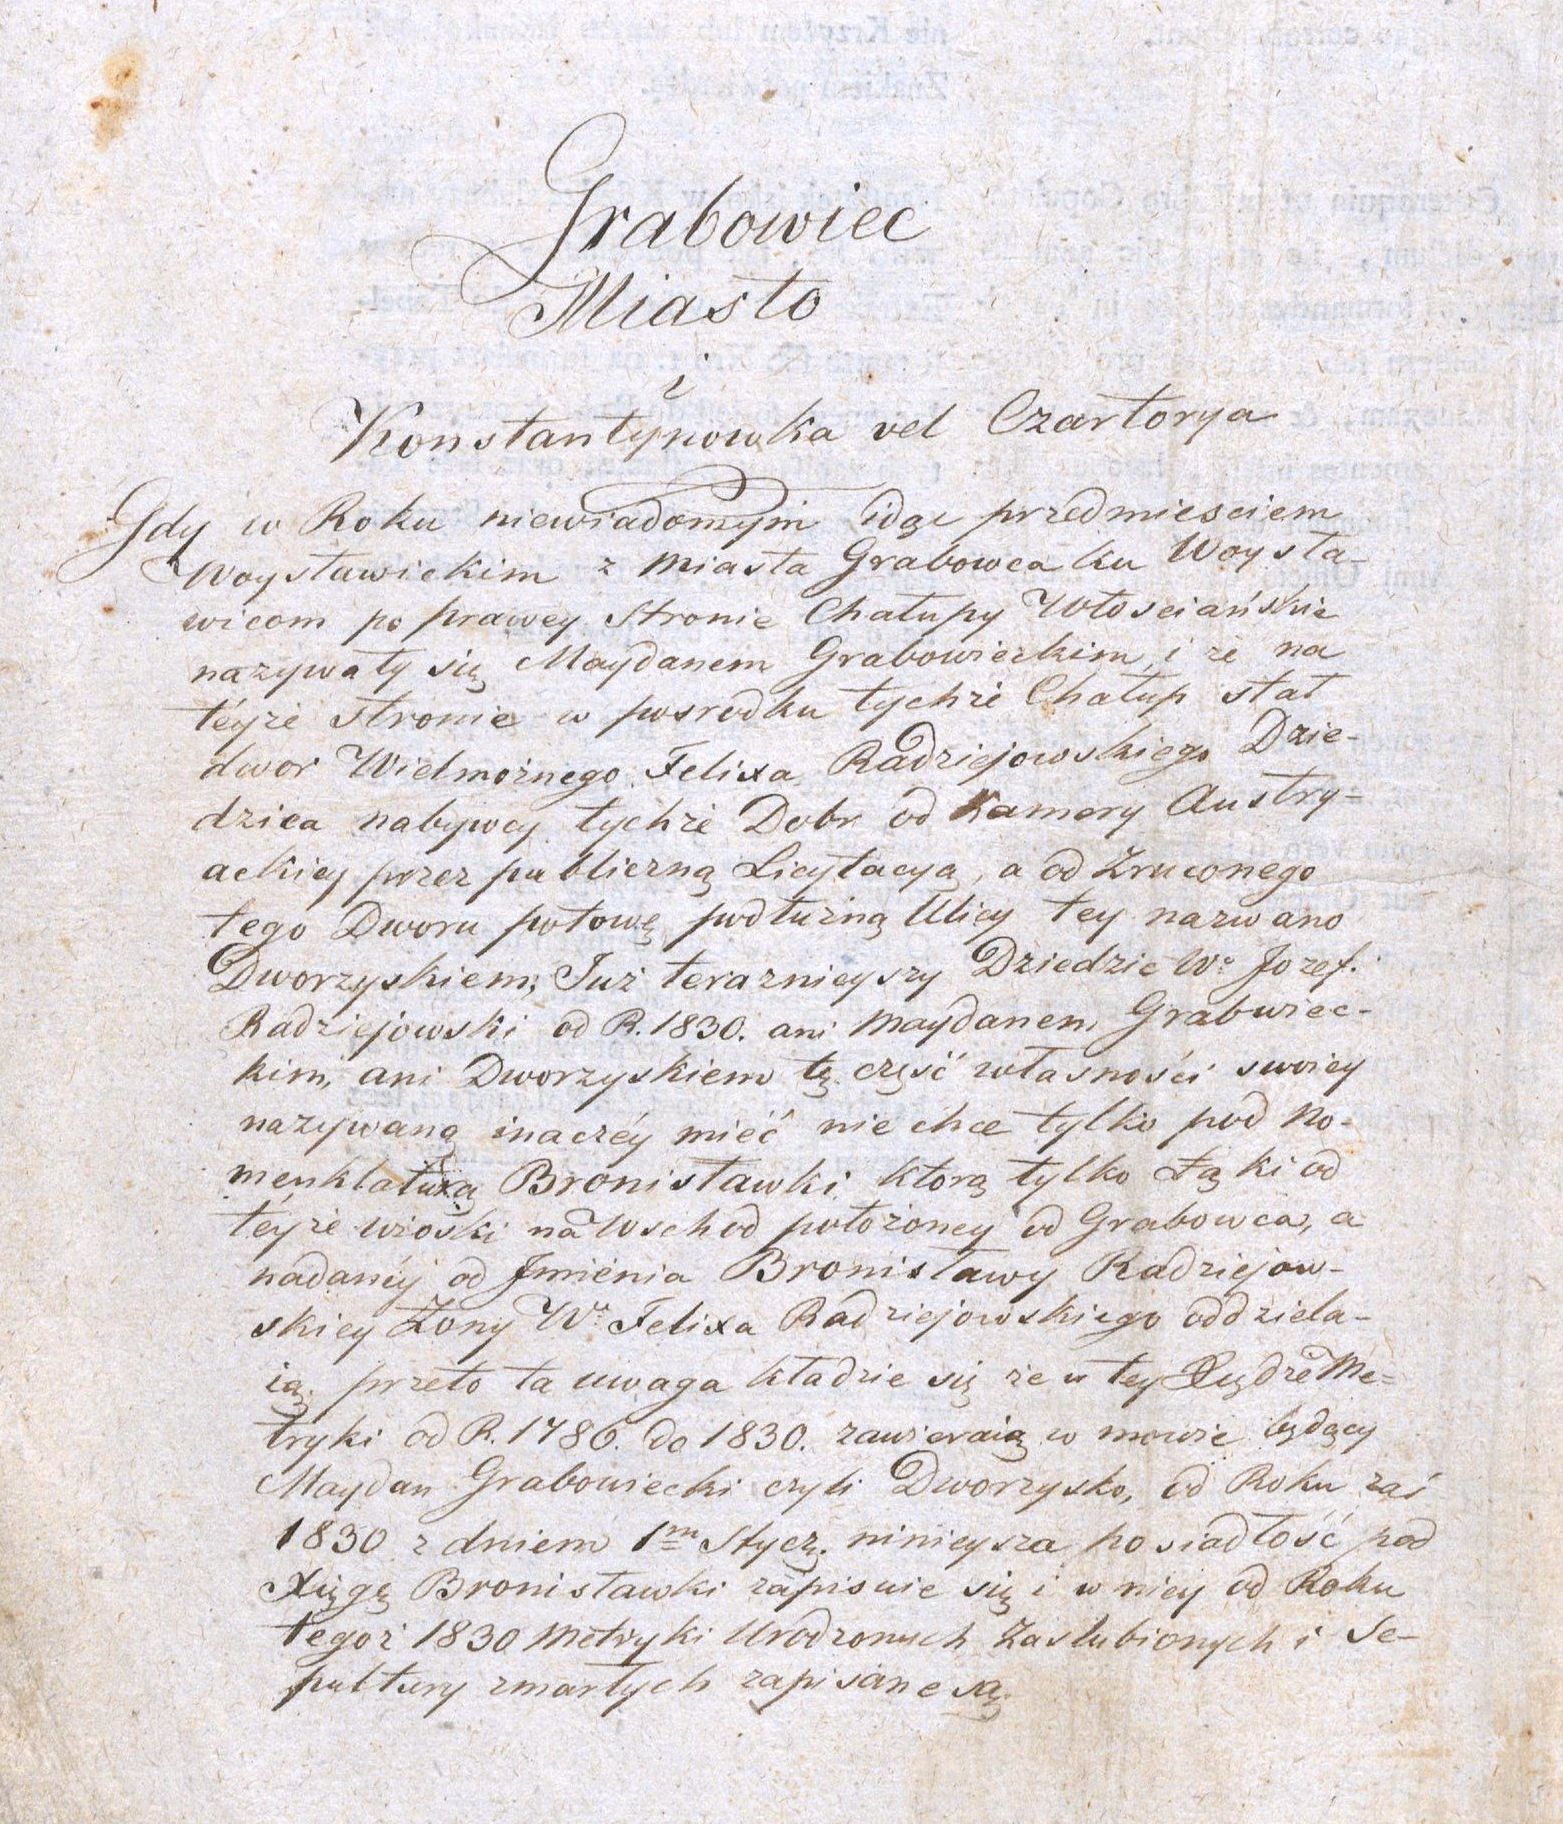 Grabowiec
Miasto
i
Konstantynowka vel Czartorya
Gdy w Roku niewiadomym idąc przedmiesciem
Woysławickim z Miasta Grabowca ku Woysła-
wicom po prawey Stronie Chałupy Włosciańskie
nazywały się Maydanem Grabowieckim, i że na
téyże stronie w posrodku tychże Chałup stał
dwor Wielmożnego Felixa Radziejowskiego Dzie-
dzica nabywcy tychże Dobr od Kamery Austry=
ackiey przez publiczną Licytacyą, a od Zruconego
tego Dworu połowę podłużną Ulicy tey nazwano
Dworzyskiem; Już teraznieyszy Dziedzic Wo Jozef.
Radziejowski od R. 1830. ani Maydanem Grabowiec-
kim, ani Dworzyskiem tę część własności swoiey
nazywaną inaczéy mieć nie chce tylko pod No-
menklaturą Bronisławki, ktorą tylko Łąki od
téyże wioski na Wschod położoney od Grabowca, a
nadanéy od Jmienia Bronisławy Radziejow-
skiey Żony Wo Felixa Radziejowskiego oddziela-
ią, przeto ta uwaga kładzie się że w tey Xiędze Me=
tryki od R. 1786. do 1830. zawieraią w mowie będący
Maydan Grabowiecki czyli Dworzysko, od Roku zaś
1830 z dniem 1m Stycz. ninieysza posiadłość pod
Xięgę Bronisławki zapisuie się i w niey od Roku
tegoż 1830 Metryki Urodzonych Zaslubionych i Se-
pultury zmarłych zapisane są.